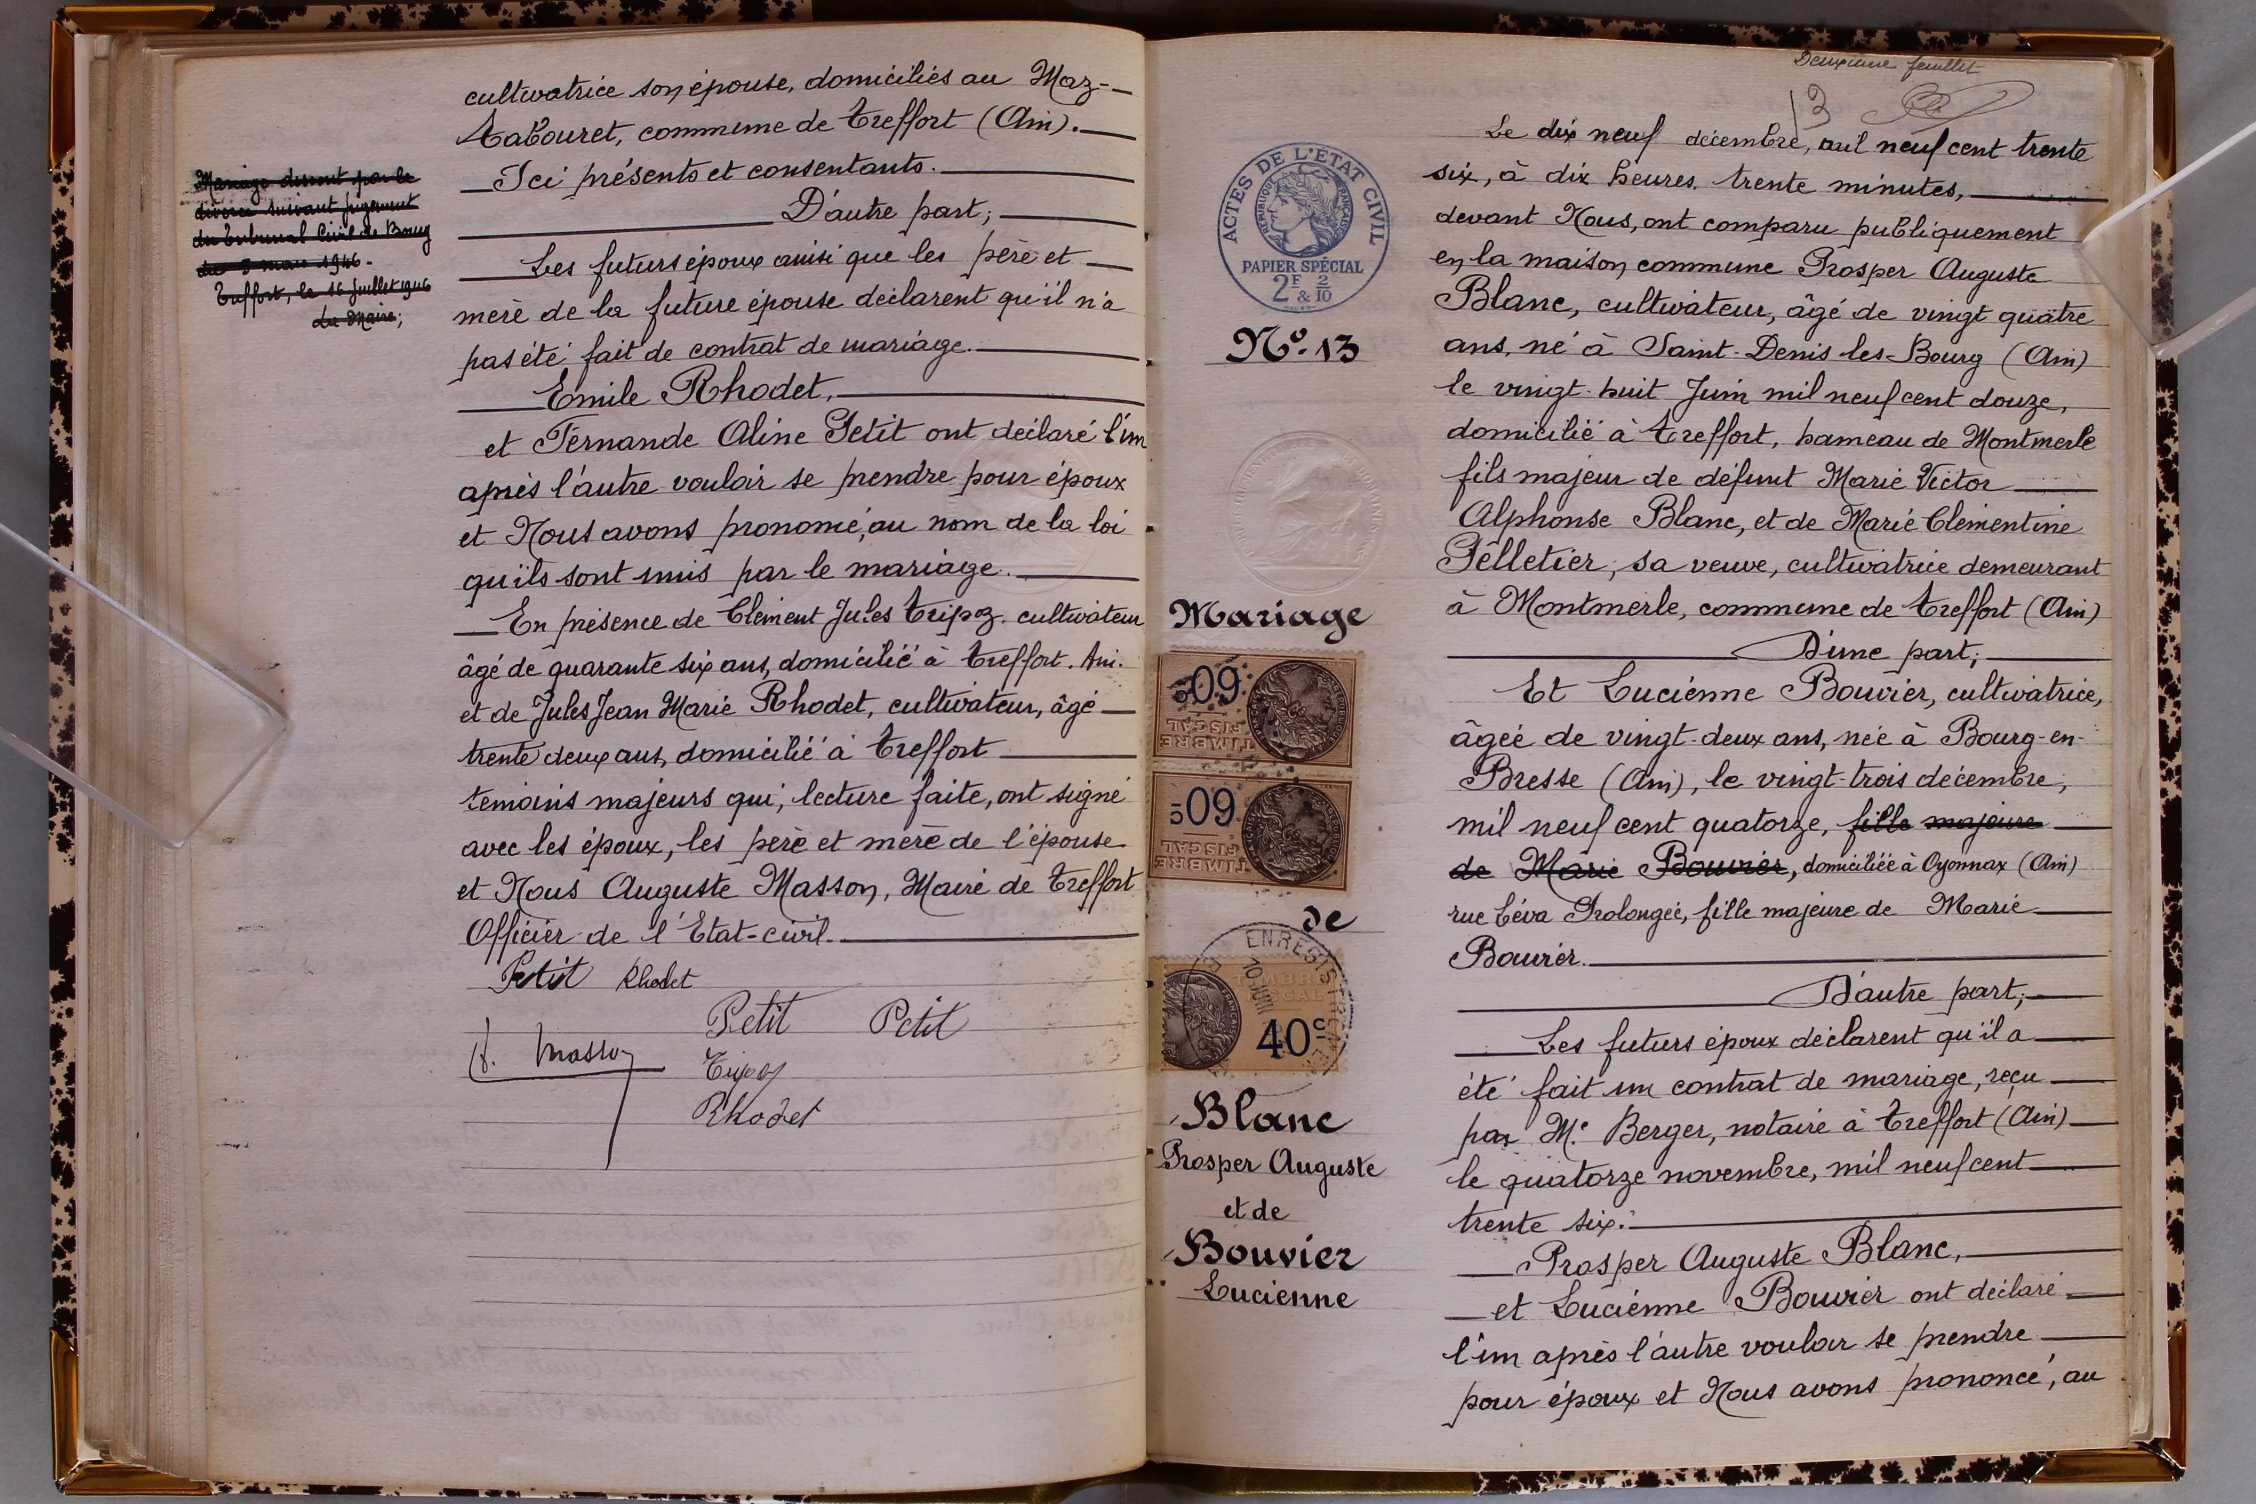 cultivatrice son épouse, domiciliés au Maz-
Tabouret, commune de Treffort (Ain).
Ici présents et consentants.
D'autre part;
Les futurs époux ainsi que les père et
mère de la future épouse déclarent qu'il n'a
pas été fait de contrat de mariage.
Emile Rhodet,
et Fernande Aline Petit ont déclaré l'un
après l'autre vouloir se prendre pour époux
et Nous avons prononcé, au nom de la loi
qu'ils sont unis par le mariage.
En présence de Clément Jules Tripoz. cultivateur
âgé de quarante six ans, domicilié à Treffort. Ain.
et de Jules Jean Marie Rhodet, cultivateur, âgé
trente deux ans, domicilié à Treffort
témoins majeurs qui, lecture faite, ont signé
avec les époux, les père et mère de l'épouse
et Nous Auguste Masson, Maire de Treffort
Officier de l'Etat-civil.
Petit Rhodet
Petit Petit
A. Masson
Tripoz
Rhodet
Mariage dissout par le
divorce suivant jugement
du Tribunal Civil de Bourg
du 8 mars 1946-
Treffort, le 16 Juillet 1946
Le Maire;
ACTES DE L'ÉTAT CIVIL
RÉPUBLIQUE FRANÇAISE
PAPIER SPÉCIAL
2F & 2/10
No. 13
Mariage
60
TIMBRE
FISCAL
60
TIMBRE
FISCAL
de
ENREGISTREMENT
TIMBRE
FISCAL
40c
Blanc
Prosper Auguste
et de
Bouvier
Lucienne
Deuxième feuillet
13
Le dix neuf décembre, mil neuf cent trente
six, à dix heures. trente minutes,
devant Nous, ont comparu publiquement
en la maison commune Prosper Auguste
Blanc, cultivateur, âgé de vingt quatre
ans, né à Saint-Denis les-Bourg (Ain)
le vingt-huit Juin mil neuf cent douze,
domicilié à Treffort, hameau de Montmerle
fils majeur de défunt Marie Victor
Alphonse Blanc, et de Marie Clémentine
Pelletier, sa veuve, cultivatrice demeurant
à Montmerle, commune de Treffort (Ain)
D'une part;
Et Lucienne Bouvier, cultivatrice,
âgée de vingt-deux ans, née à Bourg-en-
Bresse (Ain), le vingt-trois décembre,
mil neuf cent quatorze, fille majeure
de Marie Bouvier, domiciliée à Oyonnax (Ain)
rue Céva Prolongée, fille majeure de Marie
Bouvier.
D'autre part;
Les futurs époux déclarent qu'il a
été fait un contrat de mariage, reçu
par Me Berger, notaire à Treffort (Ain)
le quatorze novembre, mil neuf cent
trente six.
Prosper Auguste Blanc,
et Lucienne Bouvier ont déclaré
l'un après l'autre vouloir se prendre
pour époux et Nous avons prononcé, au